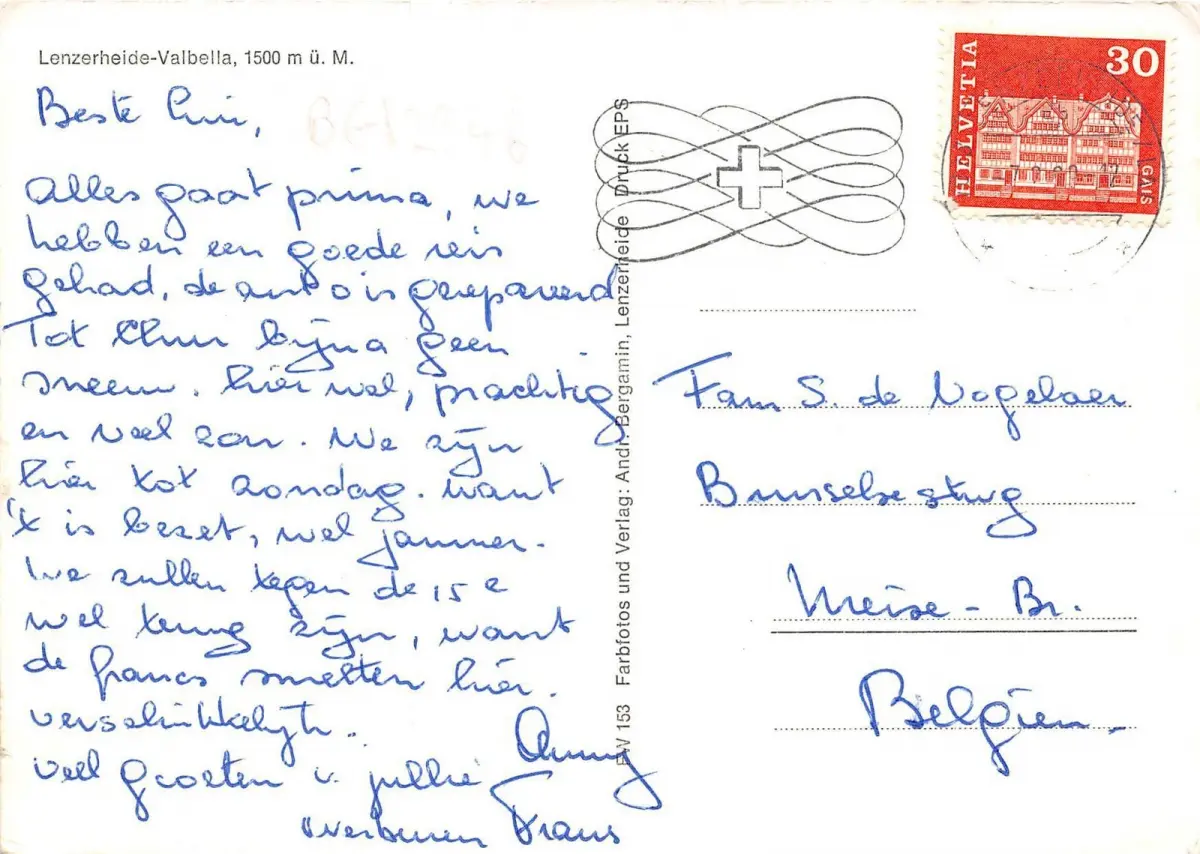 Lenzerheide-Valbella, 1500 m ü. M.
Beste
Alles gaat prima, we
hebben een goede reis
gehad, de auto is gerepareerd
Tot Chur bijna geen
sneeuw. hier wel, prachtig
en veel zon. We zijn
hier tot zondag. want
't is bezet, wel jammer.
We zullen tegen de 15 e
wel terug zijn, want
de francs smelten hier.
verschrikkelijk.
veel groeten v. jullie
Anny
Frans
EW 153 Farbfotos und Verlag: Andr. Bergamin, Lenzerheide Druck EPS
HELVETIA
30
GAIS
Fam S. de Vogelaer
Brusselsesteeg
Meise - Br.
Belgien.